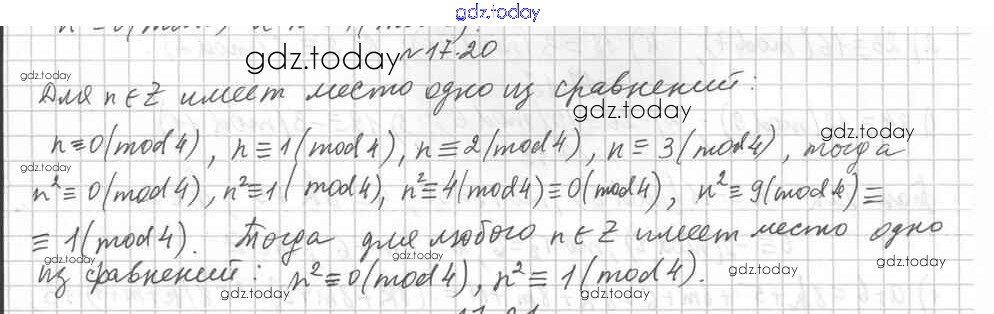 gdz.today
gdz.today
№ 17.20
gdz.today
Для n ∈ Z имеет место одно из сравнений:
gdz.today
gdz.today
n ≡ 0 (mod 4), n ≡ 1 (mod 4), n ≡ 2 (mod 4), n ≡ 3 (mod 4), тогда
gdz.today
n² ≡ 0 (mod 4), n² ≡ 1 (mod 4), n² ≡ 4 (mod 4) ≡ 0 (mod 4), n² ≡ 9 (mod 4) ≡
gdz.today
gdz.today
≡ 1 (mod 4). Тогда для любого n ∈ Z имеет место одно
gdz.today
из сравнений: n² ≡ 0 (mod 4), n² ≡ 1 (mod 4).
gdz.today
gdz.today
gdz.today
gdz.today